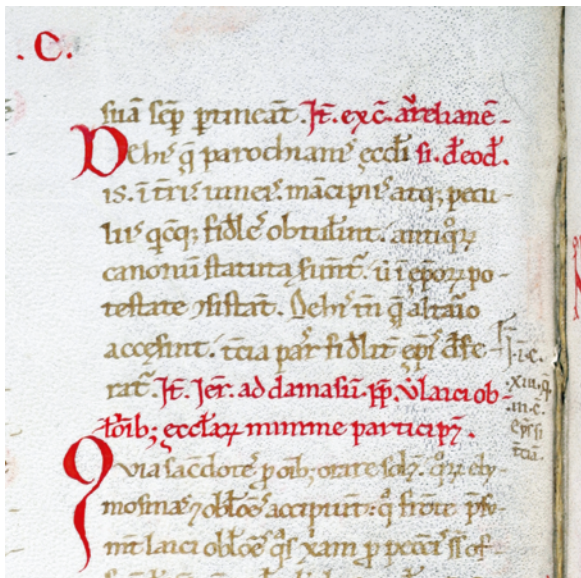 .C.
suā sēp ꝑtineāt. Iť. ex c̄. aureliane͂-
De his q̄ parochianis ecctis fi. deoď.
is. ī tris uineis. mācipiis atq; pecu-
liis qͥcq; fidles obtuɫint. antiqͦꝝ
canonū statuta ſuent̄. ū ī ep̄oꝝ po-
testate ɔsistāt. De his tn̄ q̄ altario
accesͤint. tc̄ia pars fidliť ep̄is dfe-
rat̄. Iť. Ier. ad damasū. pp̄. uɫ laici ob-
ɫoib; eccɫaꝝ minime participꝫ.
Quia sacͤdotes ꝓ oib; orare solꝫ. qͦꝝ ely-
mosinas ⁊ obɫoes accipiunt: qͣ fronte p̄su-
mt laici obɫoes qͣs xani ꝓ peccͥs
.i. c.
.xiii. q.
.iii. c.
ep̄i si
tc̄iā.